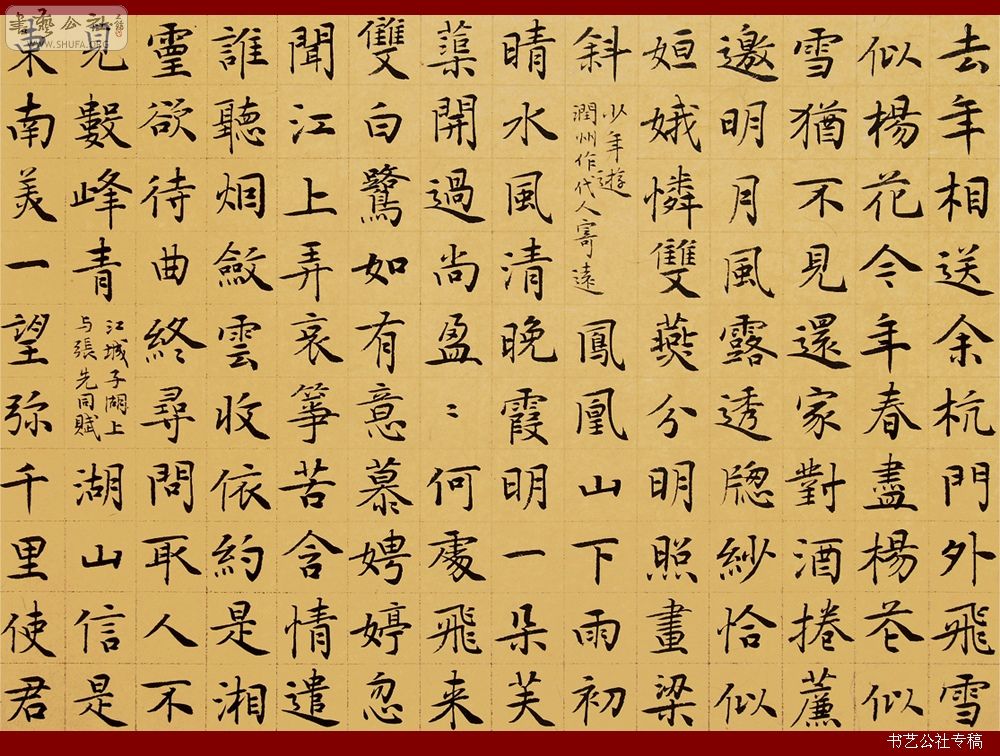 去年相送余杭門外飛雪
似楊花今年春盡楊花似
雪猶不見還家對酒捲簾
邀明月風露透牕紗恰似
姮娥憐雙燕分明照畫梁
斜
少年遊
潤州作代人寄遠
鳳凰山下雨初
晴水風清晚霞明一朵芙
蕖開過尚盈〻何處飛来
雙白鷺如有意慕娉婷忽
聞江上弄哀箏苦含情遣
誰聽烟斂雲收依約是湘
靈欲待曲終尋問取人不
見數峰青
江城子湖上
与張先同賦
湖山信是
東南美一望弥千里使君
書藝公社
WWW.SHUFA.ORG
书艺公社专稿